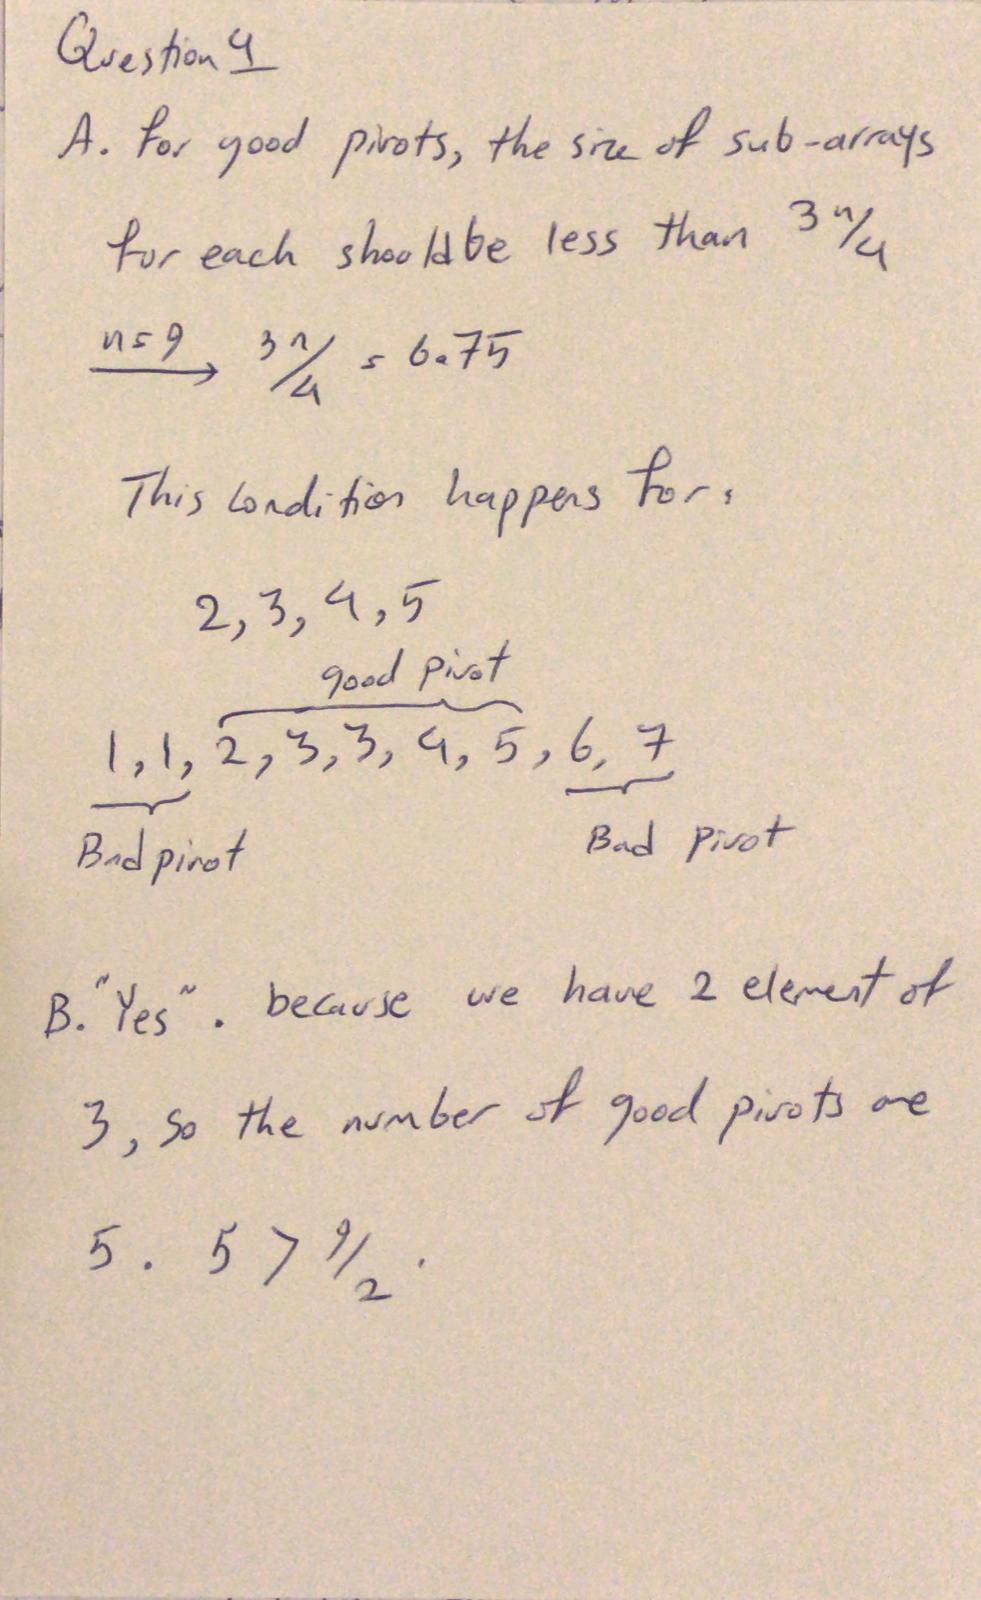 Question 4
A. for good pivots, the size of sub-arrays
for each should be less than 3n/4
n=9 → 3n/4 = 6.75
This condition happens for:
2, 3, 4, 5
good pivot
1, 1, 2, 3, 3, 4, 5, 6, 7
Bad pivot Bad pivot
B. "Yes". because we have 2 element of
3, so the number of good pivots are
5. 5 > 9/2.